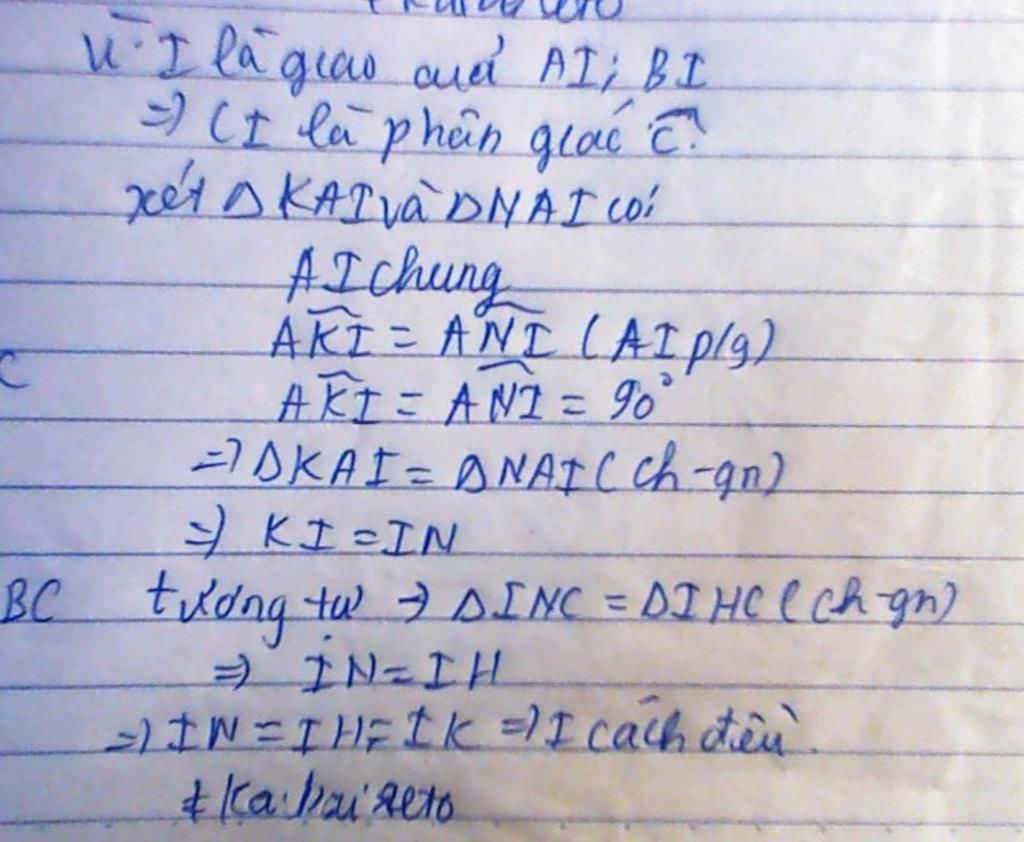 Vì I là giao của AI; BI
=> CI là phân giác Ĉ.
xét ΔKAI và ΔNAI có:
AI chung
C
AK̂I = AN̂I (AI p/g)
AK̂I = AN̂I = 90°
=> ΔKAI = ΔNAI (ch-gn)
=> KI = IN
BC
tương tự → ΔINC = ΔIHC (ch-gn)
=> IN = IH
=> IN = IH = IK => I cách đều.